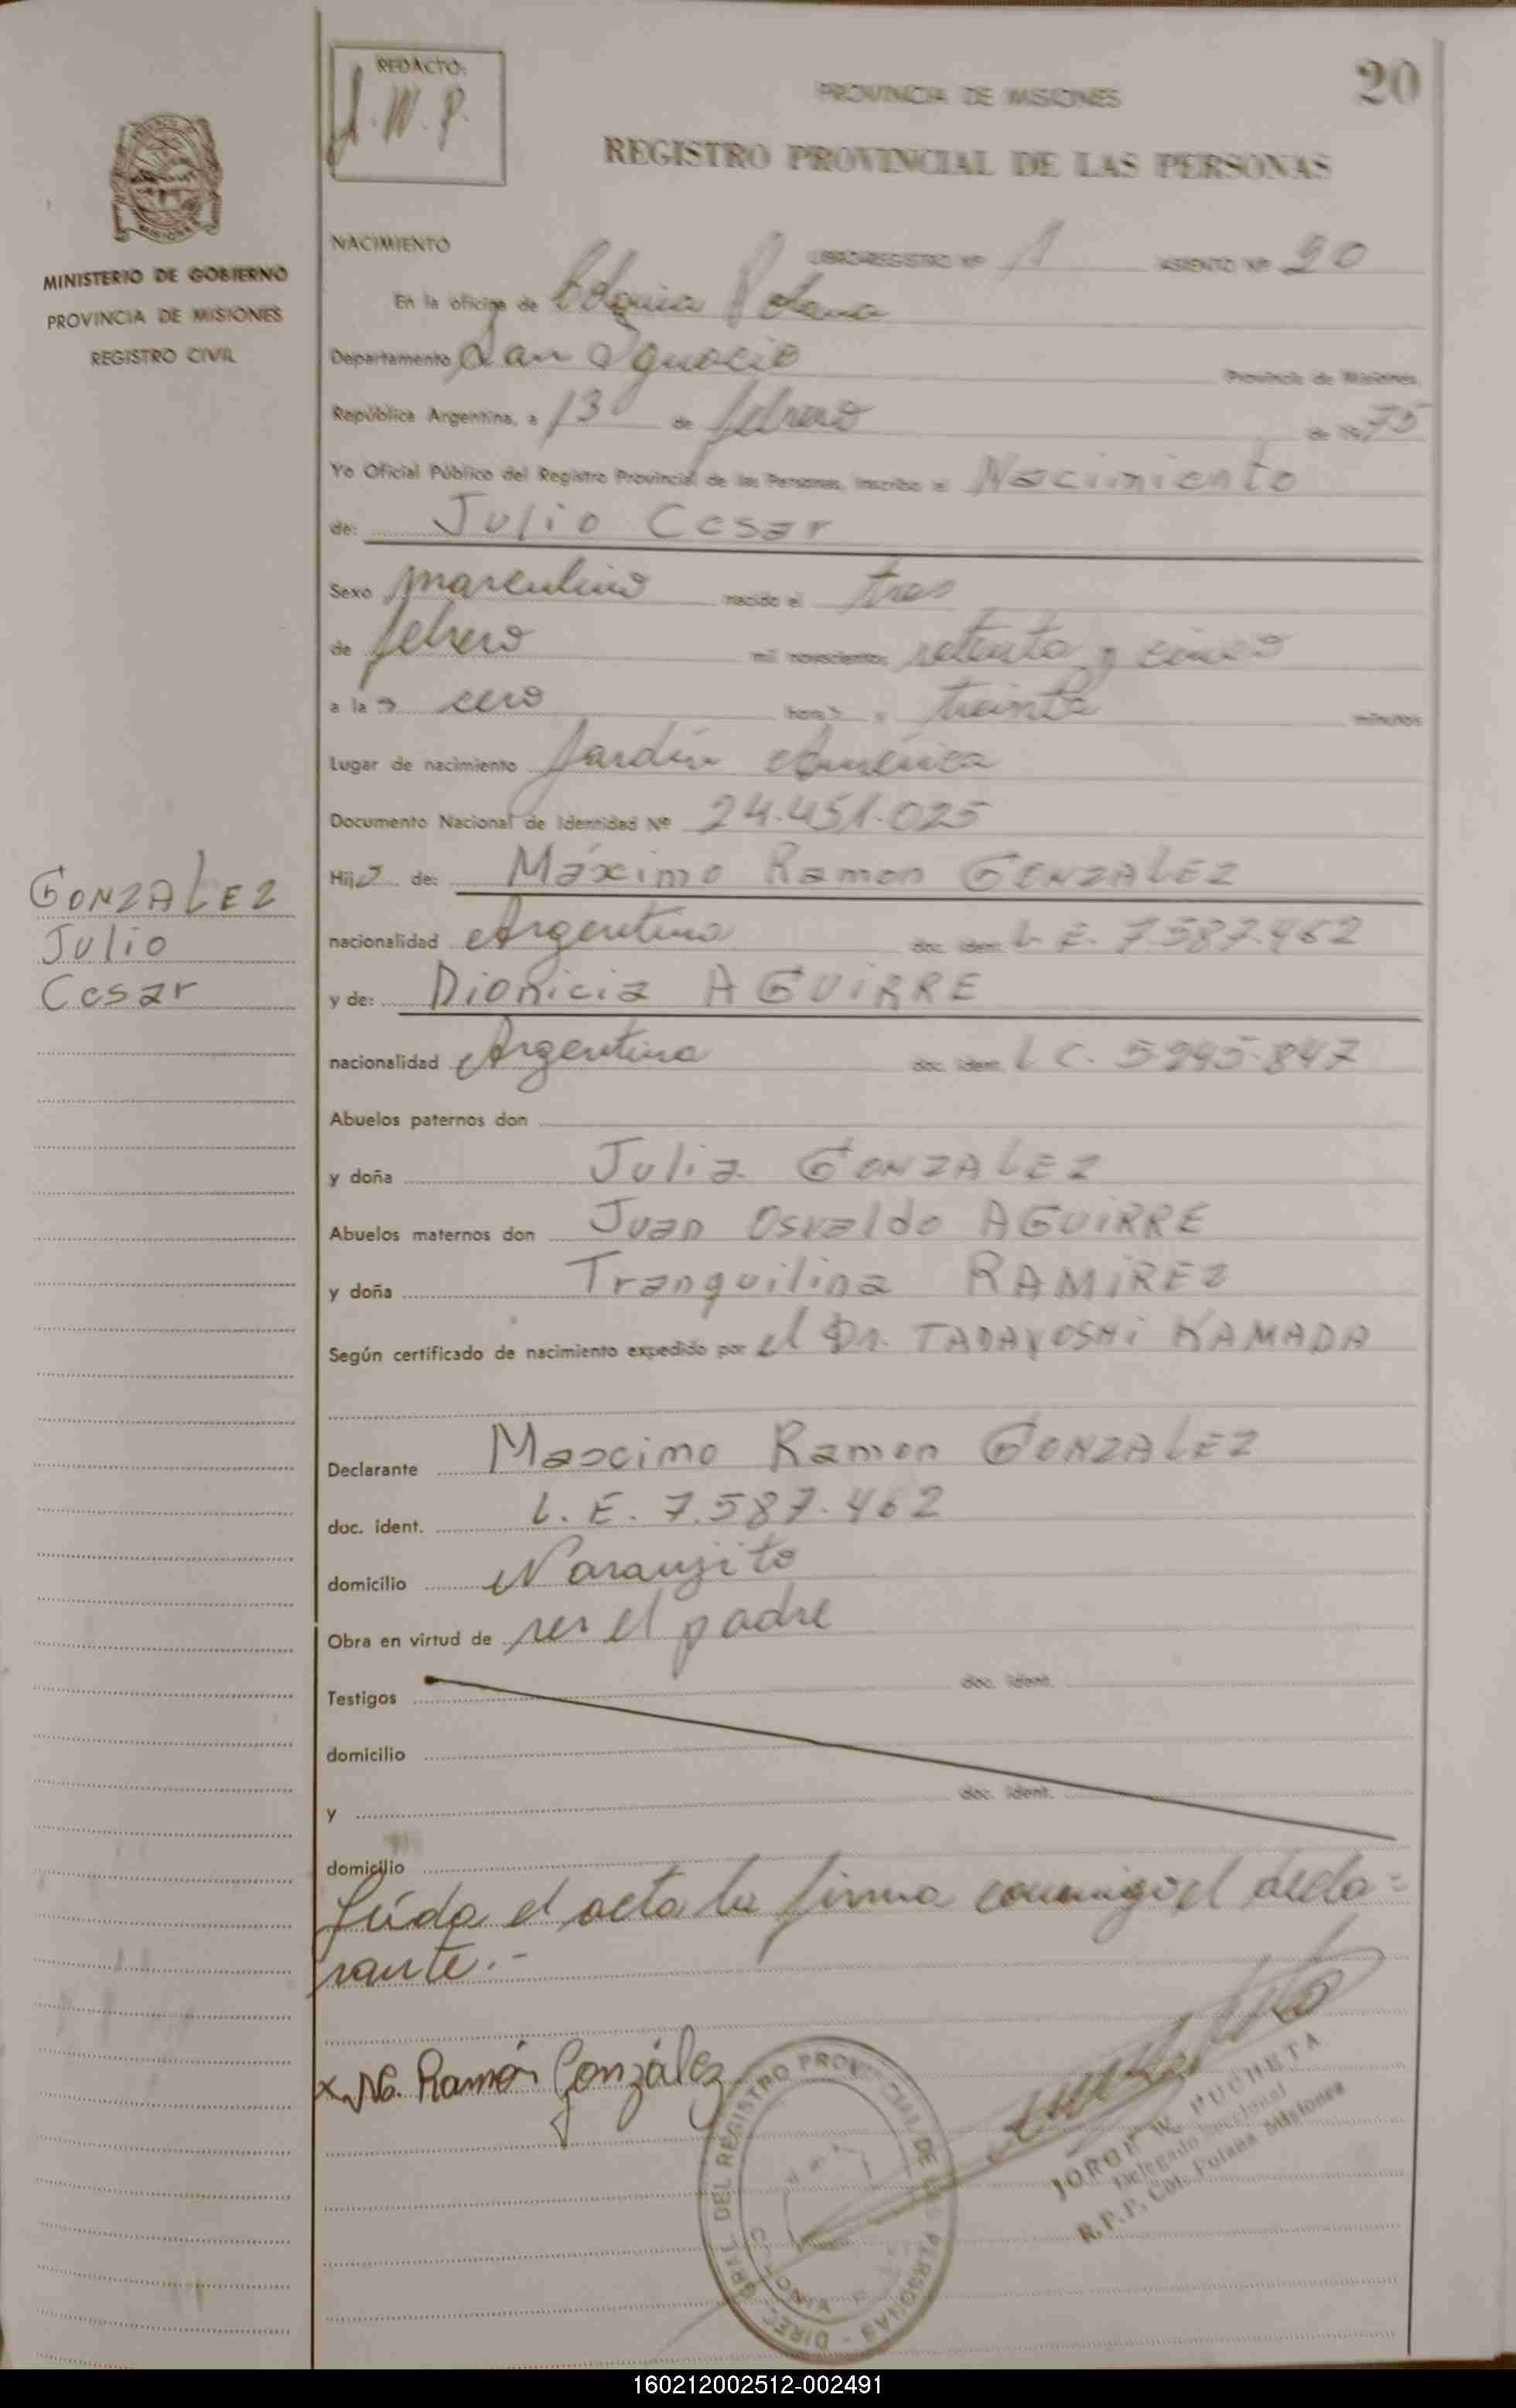 REDACTO:
J.W.P.
20
PROVINCIA DE MISIONES
REGISTRO PROVINCIAL DE LAS PERSONAS
MISIONES
MINISTERIO DE GOBIERNO
PROVINCIA DE MISIONES
REGISTRO CIVIL
NACIMIENTO LIBRO-REGISTRO Nº 1 ASIENTO Nº 20
En la oficina de Colonia Polana
Departamento San Ignacio Provincia de Misiones
República Argentina, a 13 de febrero de 1975
Yo Oficial Público del Registro Provincial de las Personas, inscribo el Nacimiento
de: Julio Cesar
Sexo masculino nacido el tres
de febrero mil novecientos setenta y cinco
a las cero horas y treinta minutos
Lugar de nacimiento Jardín América
Documento Nacional de Identidad Nº 24.451.025
Hijo de: Máximo Ramon GONZALEZ
nacionalidad Argentina doc. ident. L. E. 7.587.462
y de: Dionicia AGUIRRE
nacionalidad Argentina doc. ident. L C. 5.945.847
GONZALEZ
Julio
Cesar
Abuelos paternos don
y doña Julia GONZALEZ
Abuelos maternos don Juan Osvaldo AGUIRRE
y doña Tranquilina RAMIREZ
Según certificado de nacimiento expedido por el Dr. TADAYOSHI KAMADA
Declarante Maximo Ramon GONZALEZ
doc. ident. L. E. 7.587.462
domicilio Naranjito
Obra en virtud de ser el padre
Testigos doc. ident.
domicilio
y doc. ident.
domicilio
Leída el acta la firma conmigo el decla=
rante.-
x Mo. Ramón González
DIREC. GRAL. DEL REGISTRO PROVINCIAL DE LAS PERSONAS
COLONIA
JORGE W. PUCHETA
Delegado Seccional
R.P.P. Col. Polana Misiones
160212002512-002491